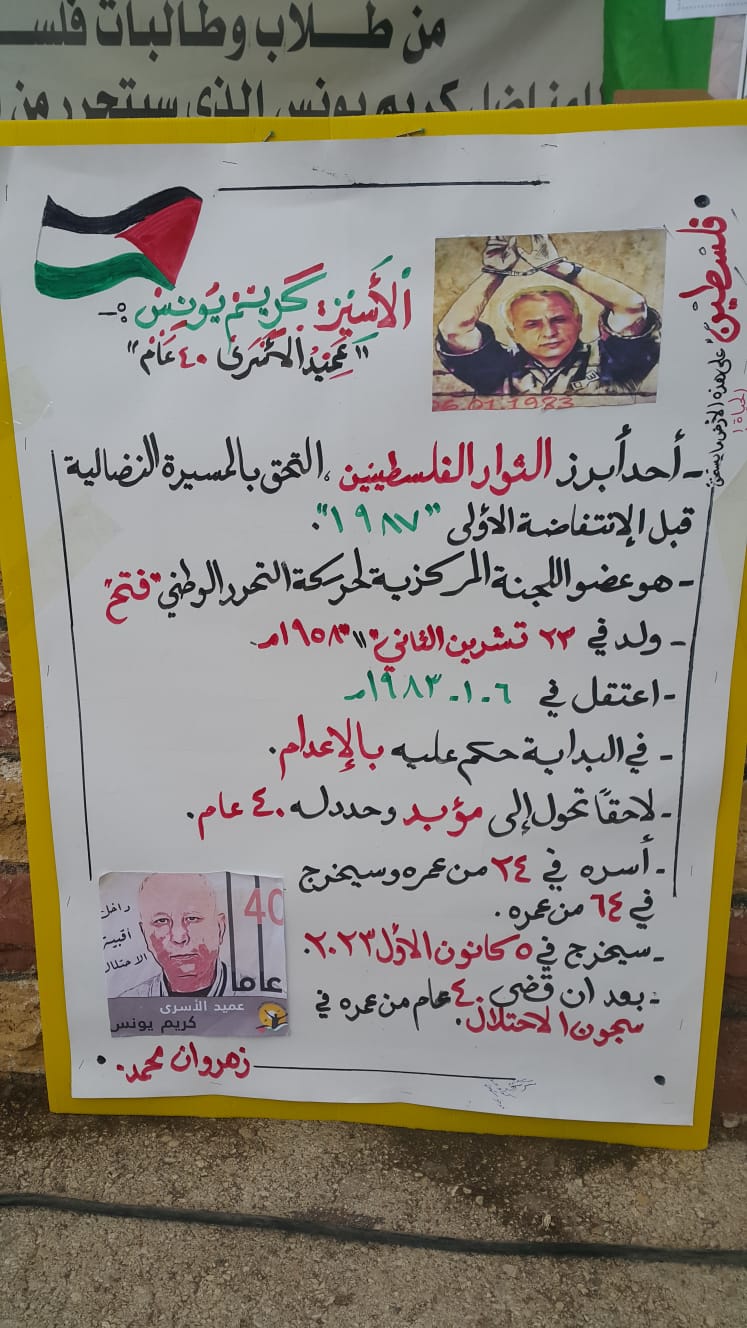 من طلاب وطالبات فلس
المناضل كريم يونس الذي سيتحرر من
فلسطين
على هذه الأرض ما يستحق
الحياة
الأسير: كريم يونس :-
"عميد الأسرى ٤٠ عام"
06.01.1983
- أحد أبرز الثوار الفلسطينين، التحق بالمسيرة النضالية
قبل الإنتفاضة الأولى "١٩٨٧".
- هو عضو اللجنة المركزية لحركة التحرر الوطني "فتح"
- ولد في ٢٣ تشرين الثاني "١١" ١٩٥٨مـ
- اعتقل في ٦-١-١٩٨٣مـ
- في البداية حكم عليه بالإعدام.
- لاحقاً تحول إلى مؤبد وحدد له ٤٠ عام.
- أسره في ٢٤ من عمره وسيخرج
في ٦٤ من عمره.
- سيخرج في ٥ كانون الأول ٢٠٢٣.
- بعد ان قضى ٤٠ عام من عمره في
سجون الاحتلال.
داخل
أقبية
الاحتلال
40
عاما
عميد الأسرى
كريم يونس
زهروان محمد.